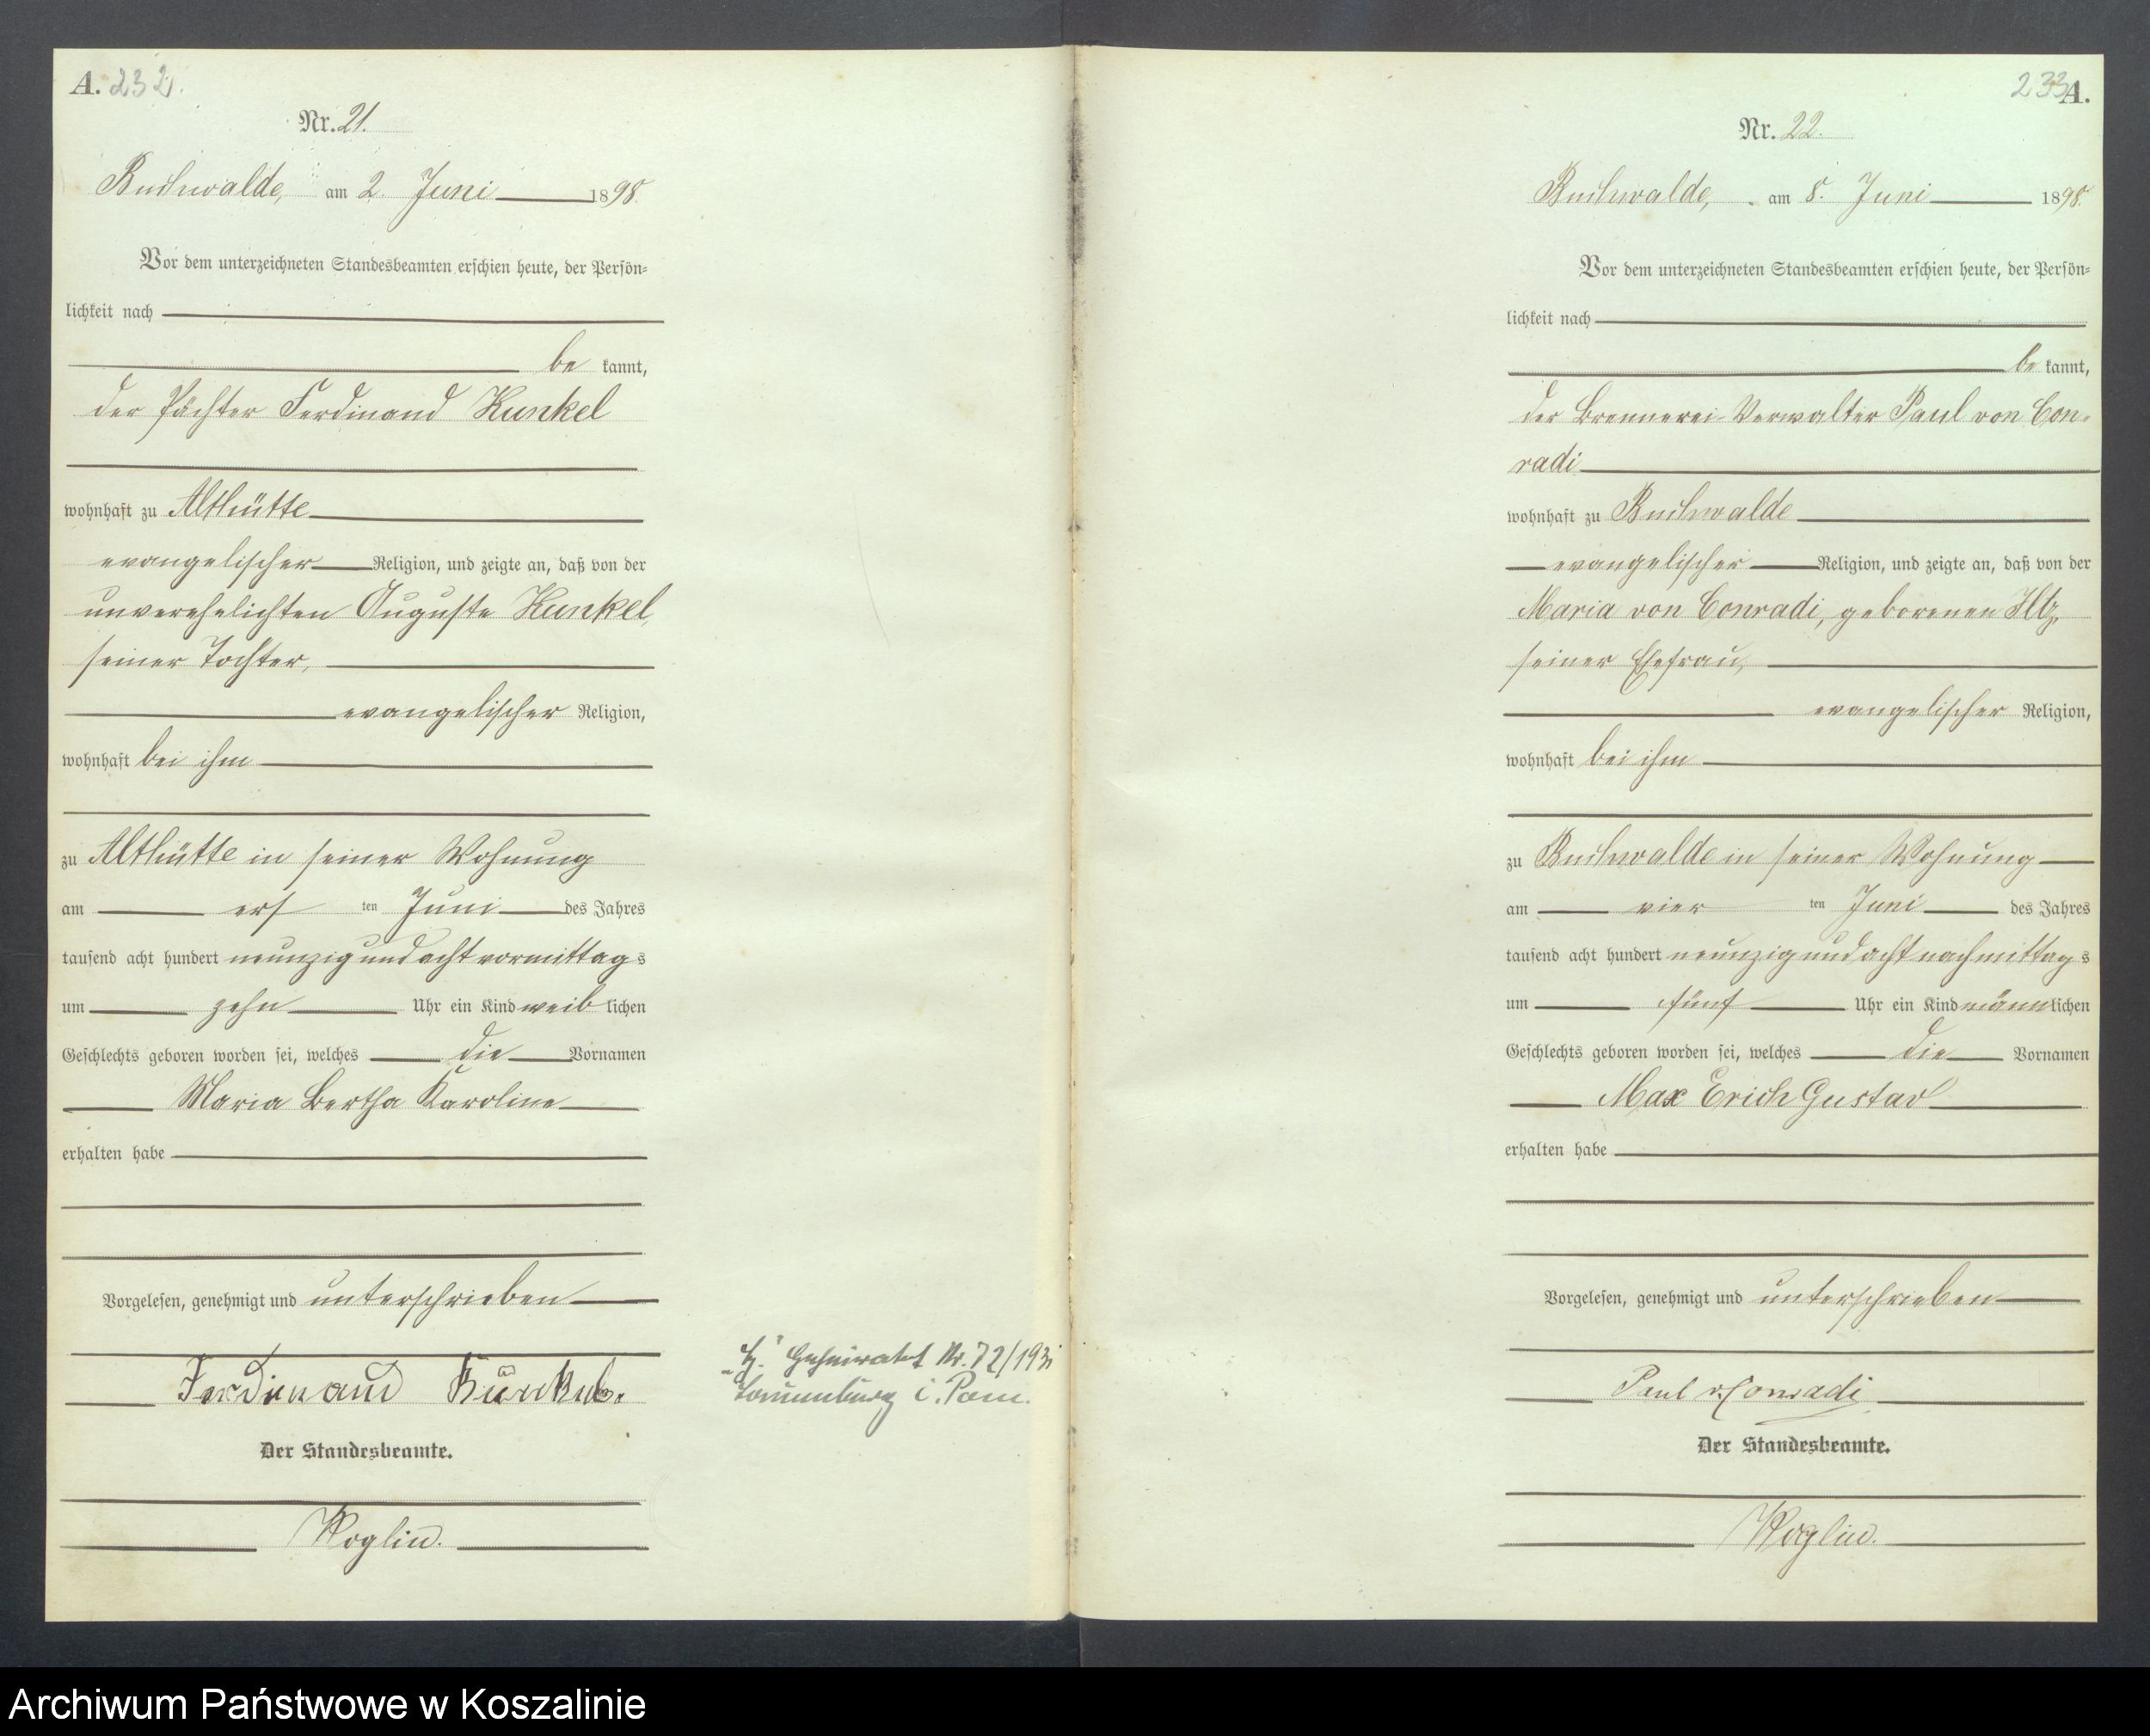 A. 232.
Nr. 21.
Buchwalde, am 2. Juni 1898.
Vor dem unterzeichneten Standesbeamten erschien heute, der Persön-
lichkeit nach
be kannt,
der Pächter Ferdinand Kunkel
wohnhaft zu Althütte
evangelischer Religion, und zeigte an, daß von der
unverehelichten Auguste Kunkel,
seiner Tochter,
evangelischer Religion,
wohnhaft bei ihm
zu Althütte in seiner Wohnung
am ersten Juni des Jahres
tausend acht hundert neunzig und acht vormittags
um zehn Uhr ein Kind weiblichen
Geschlechts geboren worden sei, welches die Vornamen
Maria Bertha Karoline
erhalten habe
Vorgelesen, genehmigt und unterschrieben
Ferdinand Kunkel.
Der Standesbeamte.
Woglin.
Geheiratet Nr. 72/193
i. Pom.
233 A.
Nr. 22.
Buchwalde, am 8. Juni 1898.
Vor dem unterzeichneten Standesbeamten erschien heute, der Persön-
lichkeit nach
be kannt,
der Brennerei-Verwalter Paul von Con-
radi
wohnhaft zu Buchwalde
evangelischer Religion, und zeigte an, daß von der
Maria von Conradi, geborenen
seiner Ehefrau,
evangelischer Religion,
wohnhaft bei ihm
zu Buchwalde in seiner Wohnung
am vierten Juni des Jahres
tausend acht hundert neunzig und acht nachmittags
um fünf Uhr ein Kind männlichen
Geschlechts geboren worden sei, welches die Vornamen
Max Erich Gustav
erhalten habe
Vorgelesen, genehmigt und unterschrieben
Paul v. Conradi
Der Standesbeamte.
Woglin.
Archiwum Państwowe w Koszalinie